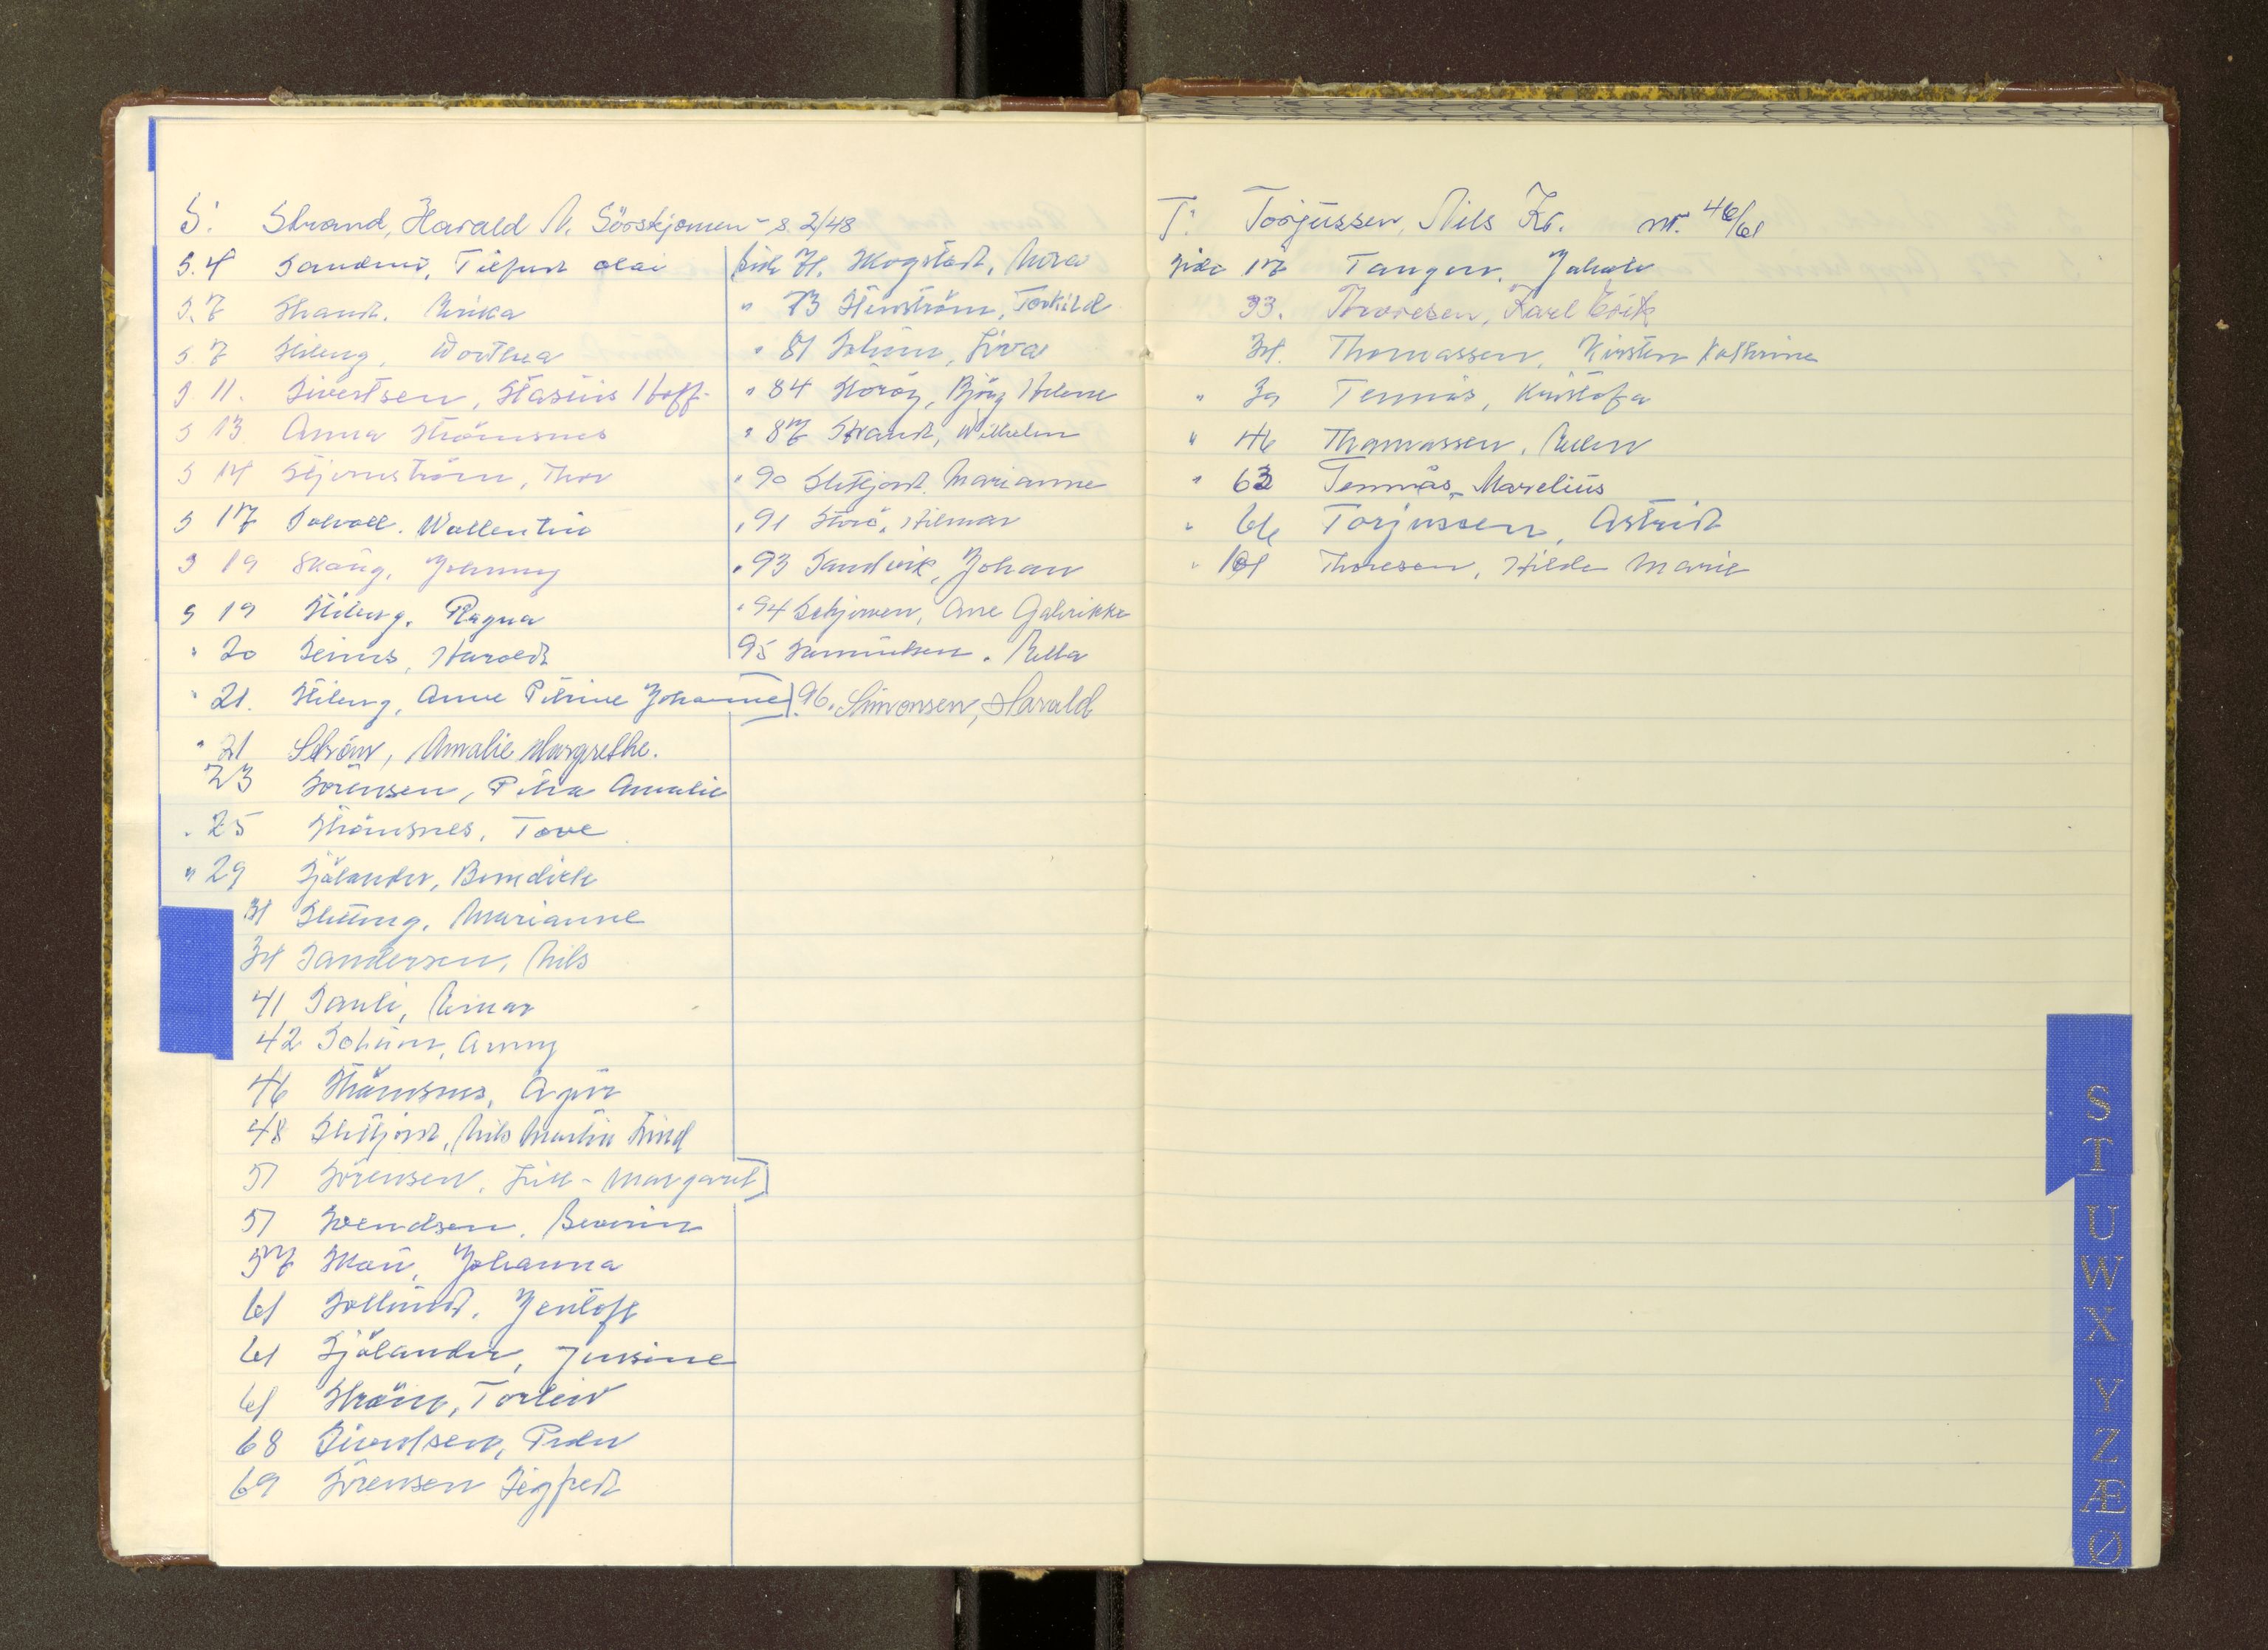 S: Strand, Harald N. Sörskjomen - s. 2/48
S. 4 Sandmo, Tilfred Olai
S. 7 Strand, Erika
S. 7 Stileng, Dorthea
S 11. Sivertsen, Stasius Hoff-
S 13 Anna Strömsnes
S 14 Stjernström, Thor
S 17 Solvoll. Wallentin
S 19 Skoug, Johnny
S 19 Stileng, Ragna
" 20 Seines, Harold
" 21. Stileng, Anne Petrine Johanne
" 21 Ström, Amalie Margrethe.
23 Sörensen, Petra Amalie
" 25 Strömsnes, Tove
" 29 Sjölander, Benedicte
31 Marianne
34 Sandersen, Nils
41 Sauli, Einar
42 Anny
46 Strömsnes,
48 Slettjord, Nils Martin Lind
51 Sörensen, Lill-Margaret
51 Svendsen,
57 Skau, Johanna
61 Sollund, Jentoft
61 Sjölander, Jensine
61 Ström, Torleiv
68 Sivertsen, Peder
69 Sörensen Sigfred
side 71. Skogstad, Nora
" 73 Stenström, Torkild
" 81
" 84 Störöy, Björg Helene
" 87 Strand, Wilhelm
" 90 Slettjord, Marianne
" 91 Hilmar
" 93 Sandvik, Johan
" 94 Ane Gabrikke
95 Samuelsen, Betta
96. Simonsen, Harald
T: Torjussen, Nils Kr. nr. 46/61
side 17 Tangen, Jakob
33. Thoresen, Karl Erik
34. Thomassen, Kirsten Kathrine
" 39 Tennås, Kristofa
" 46 Thomassen,
" 63 Tennås, Marelius
" 66 Torjussen, Astrid
" 101 Thoresen, Hilde Marie
S
T
U
W
X
Y
Z
Æ
Ø